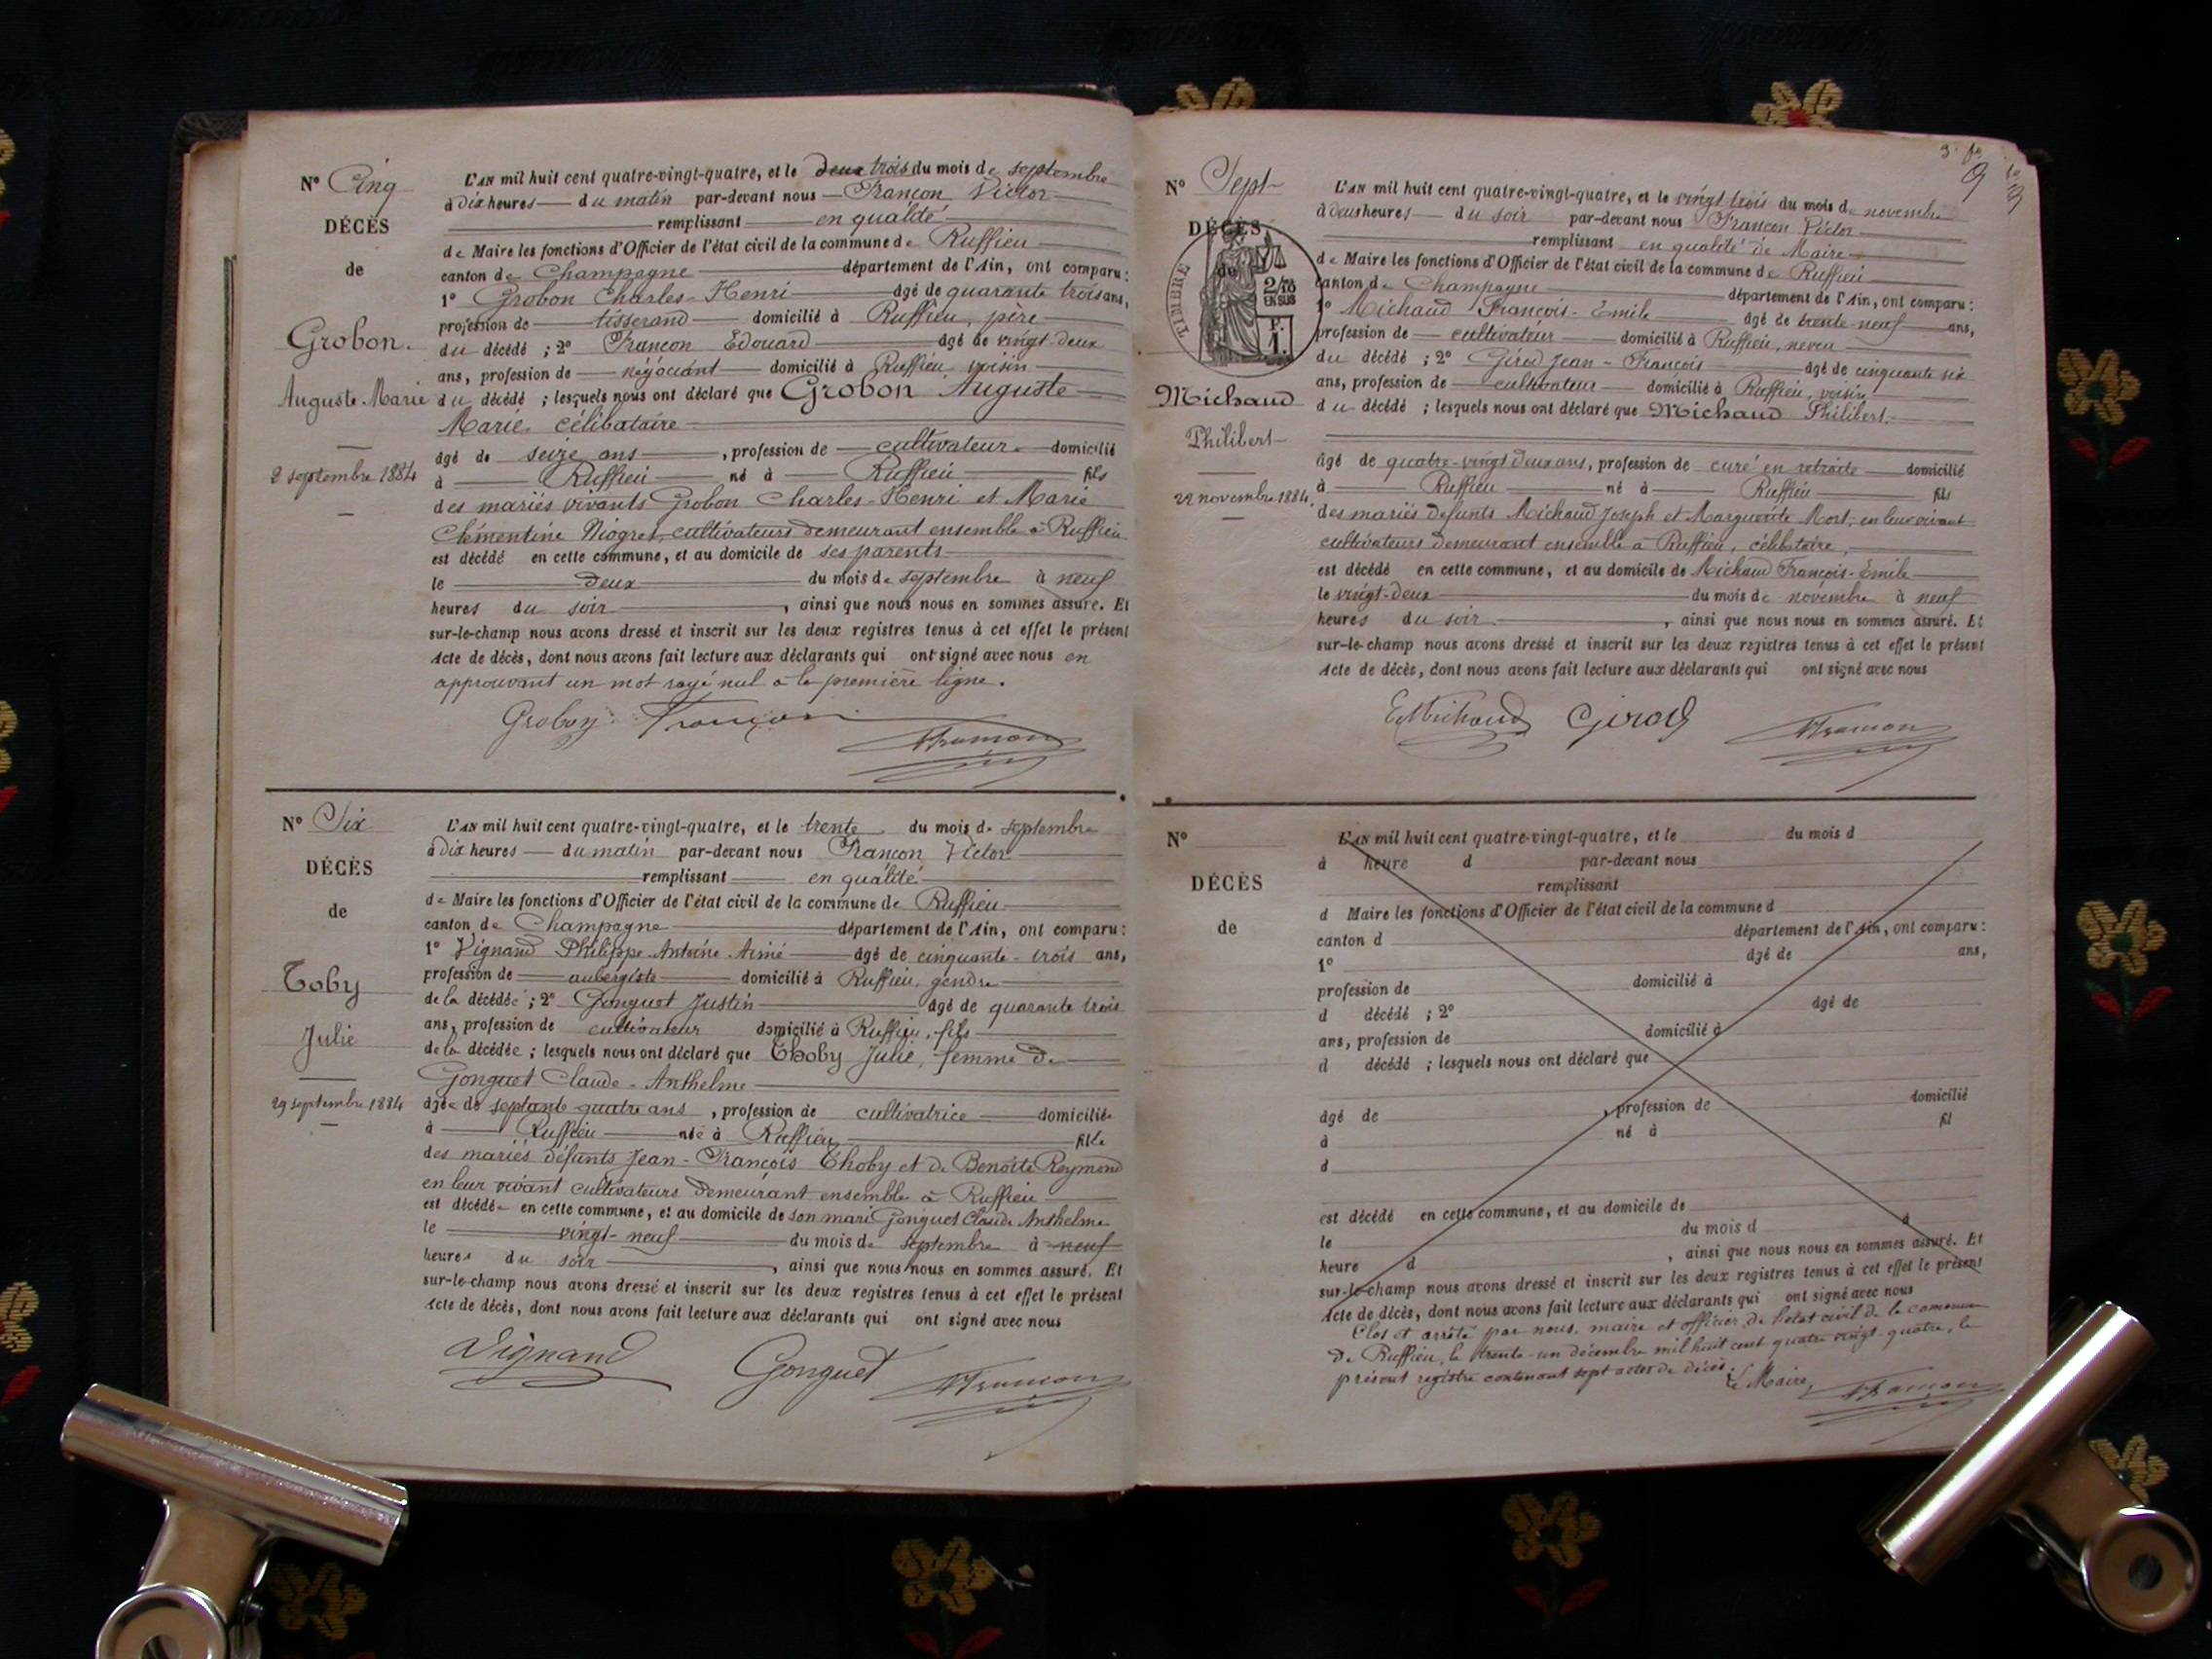 N° Cinq
DÉCÈS
de
Grobon.
Auguste-Marie
2 septembre 1884
L'AN mil huit cent quatre-vingt-quatre, et le deux trois du mois de septembre
à dix heures du matin par-devant nous Francon Victor
remplissant en qualité
de Maire les fonctions d'Officier de l'état civil de la commune de Ruffieu
canton de Champagne département de l'Ain, ont comparu :
1° Grobon Charles-Henri âgé de quarante trois ans,
profession de tisserand domicilié à Ruffieu, père
du décédé ; 2° Francon Edouard âgé de vingt-deux
ans, profession de négociant domicilié à Ruffieu voisin
du décédé ; lesquels nous ont déclaré que Grobon Auguste
Marie, célibataire
âgé de seize ans, profession de cultivateur domicilié
à Ruffieu né à Ruffieu fils
des mariés vivants Grobon Charles-Henri et Marie
Clémentine Niogret, cultivateurs demeurant ensemble à Ruffieu
est décédé en cette commune, et au domicile de ses parents
le deux du mois de septembre à neuf
heures du soir, ainsi que nous nous en sommes assuré. Et
sur-le-champ nous avons dressé et inscrit sur les deux registres tenus à cet effet le présent
Acte de décès, dont nous avons fait lecture aux déclarants qui ont signé avec nous en
approuvant un mot rayé nul à la première ligne.
Grobon Francon
VFrancon
N° Six
DÉCÈS
de
Toby
Julie
29 septembre 1884
L'AN mil huit cent quatre-vingt-quatre, et le trente du mois de septembre
à dix heures du matin par-devant nous Francon Victor
remplissant en qualité
de Maire les fonctions d'Officier de l'état civil de la commune de Ruffieu
canton de Champagne département de l'Ain, ont comparu :
1° Vignand Philippe-Antoine-Aimé âgé de cinquante-trois ans,
profession de aubergiste domicilié à Ruffieu, gendre
de la décédée ; 2° Gonguet Justin âgé de quarante trois
ans, profession de cultivateur domicilié à Ruffieu, fils
de la décédée ; lesquels nous ont déclaré que Thoby Julie, femme de
Gonguet Claude-Anthelme
âgée de septante-quatre ans, profession de cultivatrice domiciliée
à Ruffieu née à Ruffieu fille
des mariés défunts Jean-François Thoby et de Benoîte Reymond
en leur vivant cultivateurs demeurant ensemble à Ruffieu
est décédée en cette commune, et au domicile de son mari Gonguet Claude Anthelme
le vingt-neuf du mois de septembre à neuf
heures du soir, ainsi que nous nous en sommes assuré. Et
sur-le-champ nous avons dressé et inscrit sur les deux registres tenus à cet effet le présent
Acte de décès, dont nous avons fait lecture aux déclarants qui ont signé avec nous
Vignand Gonguet VFrancon
9
N° Sept
DÉCÈS
de
TIMBRE
2/10
EN SUS
P.
1.
Michaud
Philibert
22 novembre 1884.
L'AN mil huit cent quatre-vingt-quatre, et le vingt trois du mois de novembre
à deux heures du soir par-devant nous Francon Victor
remplissant en qualité de Maire
de Maire les fonctions d'Officier de l'état civil de la commune de Ruffieu
canton de Champagne département de l'Ain, ont comparu :
1° Michaud François-Emile âgé de trente-neuf ans,
profession de cultivateur domicilié à Ruffieu, neveu
du décédé ; 2° Girod Jean-François âgé de cinquante six
ans, profession de cultivateur domicilié à Ruffieu, voisin
du décédé ; lesquels nous ont déclaré que Michaud Philibert.
âgé de quatre-vingt deux ans, profession de curé en retraite domicilié
à Ruffieu né à Ruffieu fils
des mariés défunts Michaud Joseph et Marguerite Mort, en leur vivant
cultivateurs demeurant ensemble à Ruffieu, célibataire,
est décédé en cette commune, et au domicile de Michaud François-Emile
le vingt-deux du mois de novembre à neuf
heures du soir, ainsi que nous nous en sommes assuré. Et
sur-le-champ nous avons dressé et inscrit sur les deux registres tenus à cet effet le présent
Acte de décès, dont nous avons fait lecture aux déclarants qui ont signé avec nous
EMichaud Girod VFrancon
N°
DÉCÈS
de
L'AN mil huit cent quatre-vingt-quatre, et le du mois d
à heure d par-devant nous
remplissant
d Maire les fonctions d'Officier de l'état civil de la commune d
canton d département de l'Ain, ont comparu :
1° âgé de ans,
profession de domicilié à
d décédé ; 2° âgé de
ans, profession de domicilié à
d décédé ; lesquels nous ont déclaré que
âgé de , profession de domicilié
à né à fil
d
est décédé en cette commune, et au domicile de
le du mois d à
heure d , ainsi que nous nous en sommes assuré. Et
sur-le-champ nous avons dressé et inscrit sur les deux registres tenus à cet effet le présent
Acte de décès, dont nous avons fait lecture aux déclarants qui ont signé avec nous
Clos et arrêté par nous, maire et officier de l'état civil de la commune
de Ruffieu, le trente-un décembre mil huit cent quatre vingt-quatre, le
présent registre contenant sept actes de décès.
Le Maire, VFrancon